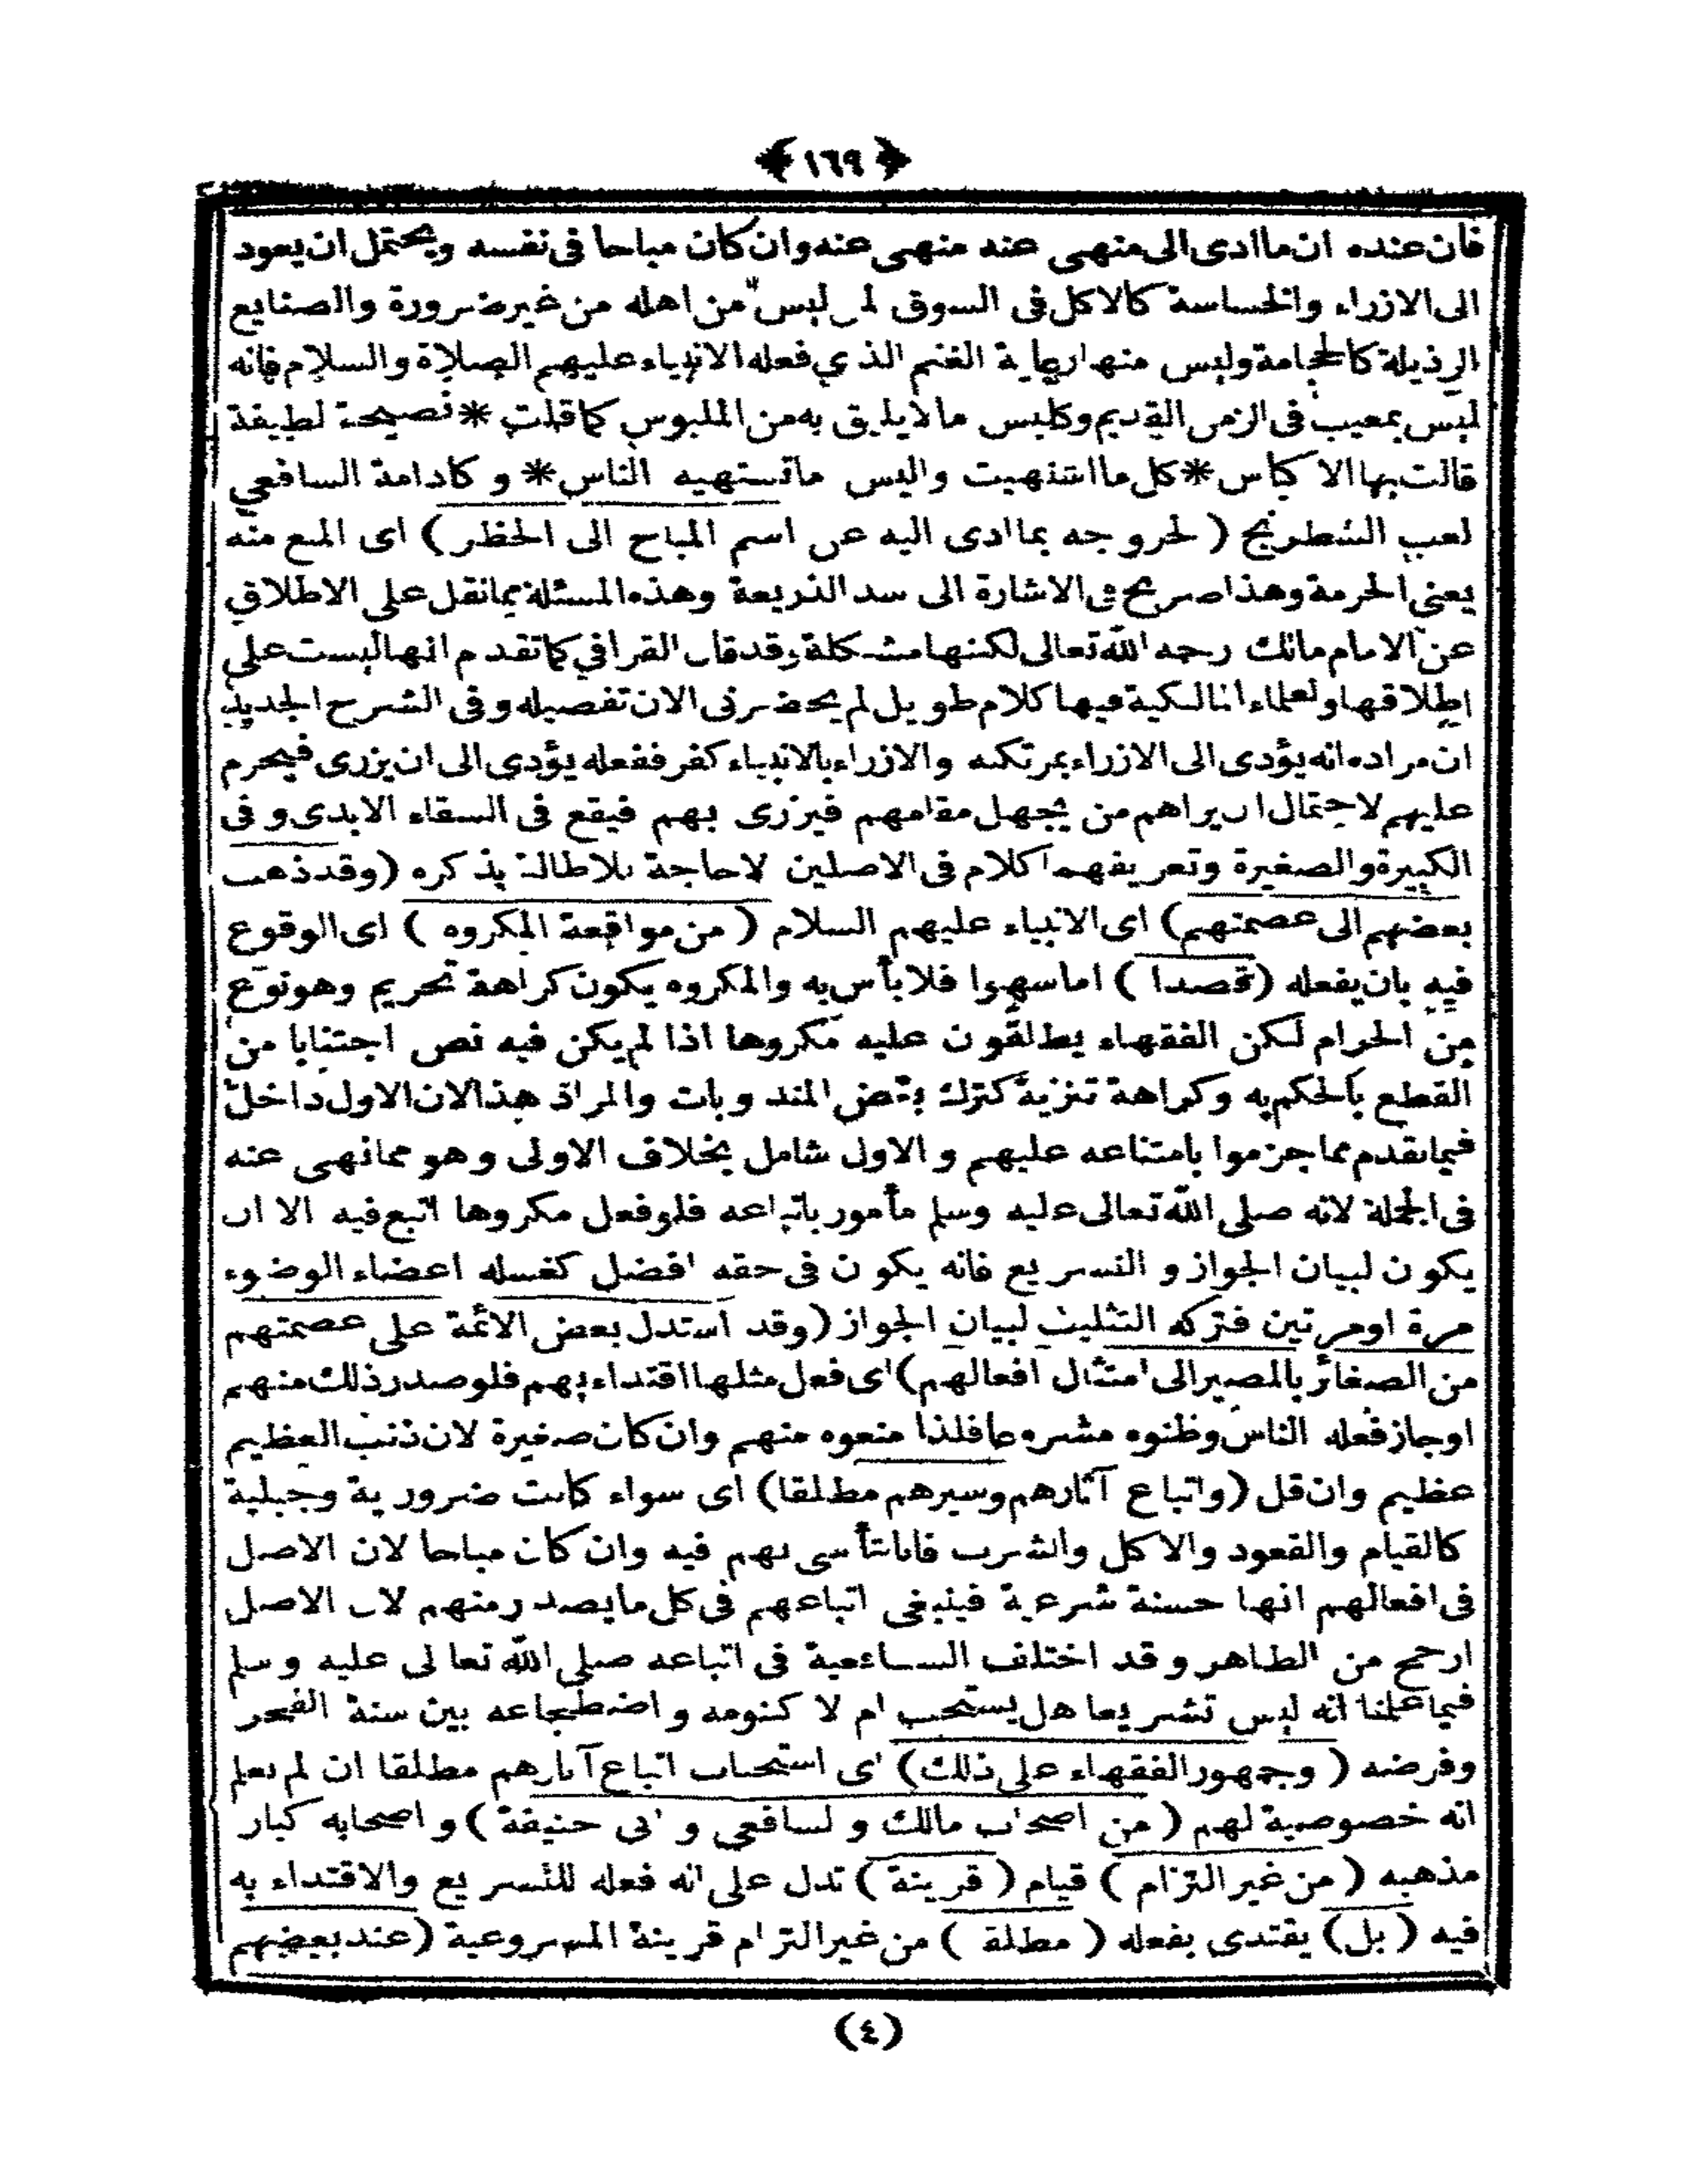 ﴿ ١٦٩ ﴾
فان عنده ان ما ادى الى منهى عنه منهى عنه وان كان مباحا فى نفسه ويحتمل ان يعود
الى الازراء والخساسة كالاكل فى السوق لمن ليس من اهله من غير ضرورة والصنايع
الرذيلة كالحجامة وليس منها رعاية الغنم الذى فعله الانبياء عليهم الصلاة والسلام فانه
ليس بمعيب فى الزمن القديم وكلبس ما لا يليق به من الملبوس كما قلت * نصيحة لطيفة
قالت بها الاكياس * كل ما اشتهيت والبس ماتشتهيه الناس * و كادامة الشافعي
لعب الشطرنج ( لخروجه بما ادى اليه عن اسم المباح الى الحظر ) اى المنع منه
يعنى الحرمة وهذا صريح فى الاشارة الى سد الذريعة وهذه المسئلة مما نقل على الاطلاق
عن الامام مالك رحمه الله تعالى لكنها مشكلة وقد قال القرافي كما تقدم انها ليست على
اطلاقها ولعلماءنا المالكية فيها كلام طويل لم يحضرنى الان تفصيله وفى الشرح الجديد
ان مراده انه يؤدى الى الازراء بمرتكبه والازراء بالانبياء كفر ففعله يؤدى الى ان يزرى فيحرم
عليهم لاحتمال ان يراهم من يجهل مقامهم فيزرى بهم فيقع فى الشقاء الابدى و فى
الكبيرة والصغيرة وتعريفهما كلام فى الاصلين لاحاجة للاطالة بذكره (وقد ذهب
بعضهم الى عصمتهم) اى الانبياء عليهم السلام ( من مواقعة المكروه ) اى الوقوع
فيه بان يفعله (قصدا ) اما سهوا فلا بأس به والمكروه يكون كراهة تحريم وهو نوع
من الحرام لكن الفقهاء يطلقون عليه مكروها اذا لم يكن فيه نص اجتنابا من
القطع بالحكم به وكراهة تنزيه كترك بعض المندوبات والمراد هذا لان الاول داخل
فيما تقدم مما جزموا بامتناعه عليهم و الاول شامل بخلاف الاولى وهو مما نهى عنه
فى الجملة لانه صلى الله تعالى عليه وسلم مأمور باتباعه فلو فعل مكروها اتبع فيه الا ان
يكون لبيان الجواز و التشريع فانه يكون فى حقه افضل كغسله اعضاء الوضوء
مرة اومرتين فتركه التثليث لبيان الجواز (وقد استدل بعض الائمة على عصمتهم
من الصغائر بالمصير الى امتثال افعالهم) اى فعل مثلها اقتداء بهم فلو صدر ذلك منهم
اوجاز فعله الناس وظنوه مشروعا فلذا منعوه منهم وان كان صغيرة لان ذنب العظيم
عظيم وان قل (واتباع آثارهم وسيرهم مطلقا) اى سواء كانت ضرورية وجبلية
كالقيام والقعود والاكل والشرب فانا نتأسى بهم فيه وان كان مباحا لان الاصل
فى افعالهم انها حسنة شرعية فينبغى اتباعهم فى كل ما يصدر منهم لان الاصل
ارجح من الظاهر وقد اختلف الشافعية فى اتباعه صلى الله تعالى عليه وسلم
فيما علمنا انه ليس تشريعا هل يستحب ام لا كنومه واضطجاعه بين سنة الفجر
وفرضه ( وجمهور الفقهاء على ذلك) اى استحباب اتباع آثارهم مطلقا ان لم نعلم
انه خصوصية لهم ( من اصحاب مالك و الشافعى و ابى حنيفة ) و اصحابه كبار
مذهبه ( من غير التزام ) قيام ( قرينة ) تدل على انه فعله للتشريع والاقتداء به
فيه ( بل) يقتدى بفعله ( مطلقا ) من غير التزام قرينة المشروعية (عند بعضهم
(٤)